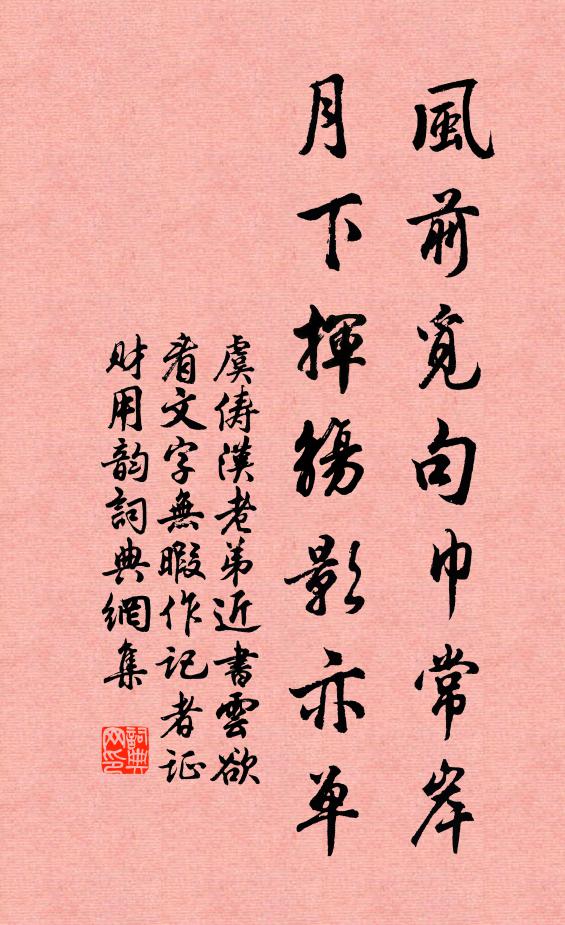 風前覓句巾常岸
月下揮觴影亦單
虞儔漢老弟近書雲欲
看文字無暇作記者証
財用韵詞典網集
詞典
网印